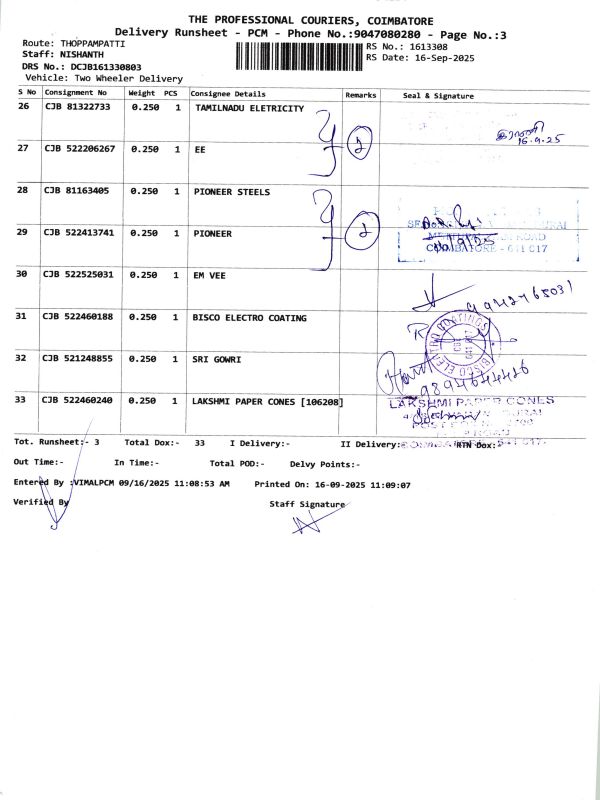 THE PROFESSIONAL COURIERS, COIMBATORE
Delivery Runsheet - PCM - Phone No.:9047080280 - Page No.:3
Route: THOPPAMPATTI
Staff: NISHANTH
DRS No.: DCJB161330803
Vehicle: Two Wheeler Delivery
RS No.: 1613308
RS Date: 16-Sep-2025
S No Consignment No Weight PCS Consignee Details Remarks Seal & Signature
26 CJB 81322733 0.250 1 TAMILNADU ELETRICITY
16.9.25
27 CJB 522206267 0.250 1 EE 2
28 CJB 81163405 0.250 1 PIONEER STEELS
29 CJB 522413741 0.250 1 PIONEER 2
COIMBATORE - 641 017
30 CJB 522525031 0.250 1 EM VEE
31 CJB 522460188 0.250 1 BISCO ELECTRO COATING
BISCO ELECTRO COATINGS
32 CJB 521248855 0.250 1 SRI GOWRI
9894644426
33 CJB 522460240 0.250 1 LAKSHMI PAPER CONES [106208]
LAKSHMI PAPER CONES
Tot. Runsheet:- 3 Total Dox:- 33 I Delivery:- II Delivery: RTN Dox:-
Out Time:- In Time:- Total POD:- Delvy Points:-
Entered By :VIMALPCM 09/16/2025 11:08:53 AM Printed On: 16-09-2025 11:09:07
Verified By Staff Signature